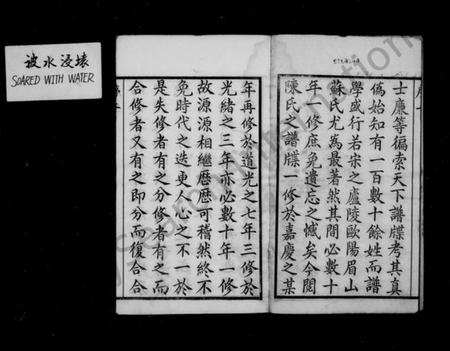 被水浸壞
SOARED WITH WATER
士廉等徧索天下譜牒考其真
偽始知有一百數十餘姓而譜
學盛行若宋之廬陵歐陽眉山
蘇氏尤為最著然其間必數十
年一修庶免遺忘之憾矣今閱
陳氏之譜牒一修於嘉慶之某
年再修於道光之七年三修於
光緒之三年亦必數十年一修
故源源相繼歷歷可稽然終不
免時代之迭更人心之不一於
是失修者有之分修者有之而
合修者又有之即分而復合合